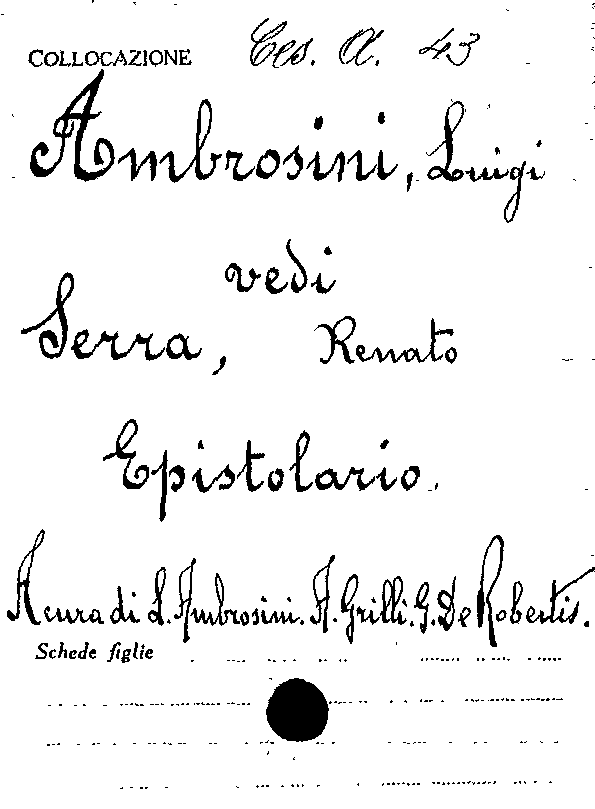 COLLOCAZIONE Ces. A. 43
Ambrosini, Luigi
vedi
Serra, Renato
Epistolario.
A cura di L. Ambrosini. A. Grilli. G. De Robertis.
Schede figlie